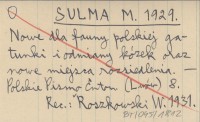 SULMA M. 1929.
Nowe dla fauny polskiej ga-
tunki i odmiany kózek oraz
nowe miejsca rozsiedlenia. —
Polskie Pismo Entom. (Lwów) 8.
Rec.: Roszkowski W. 1931.